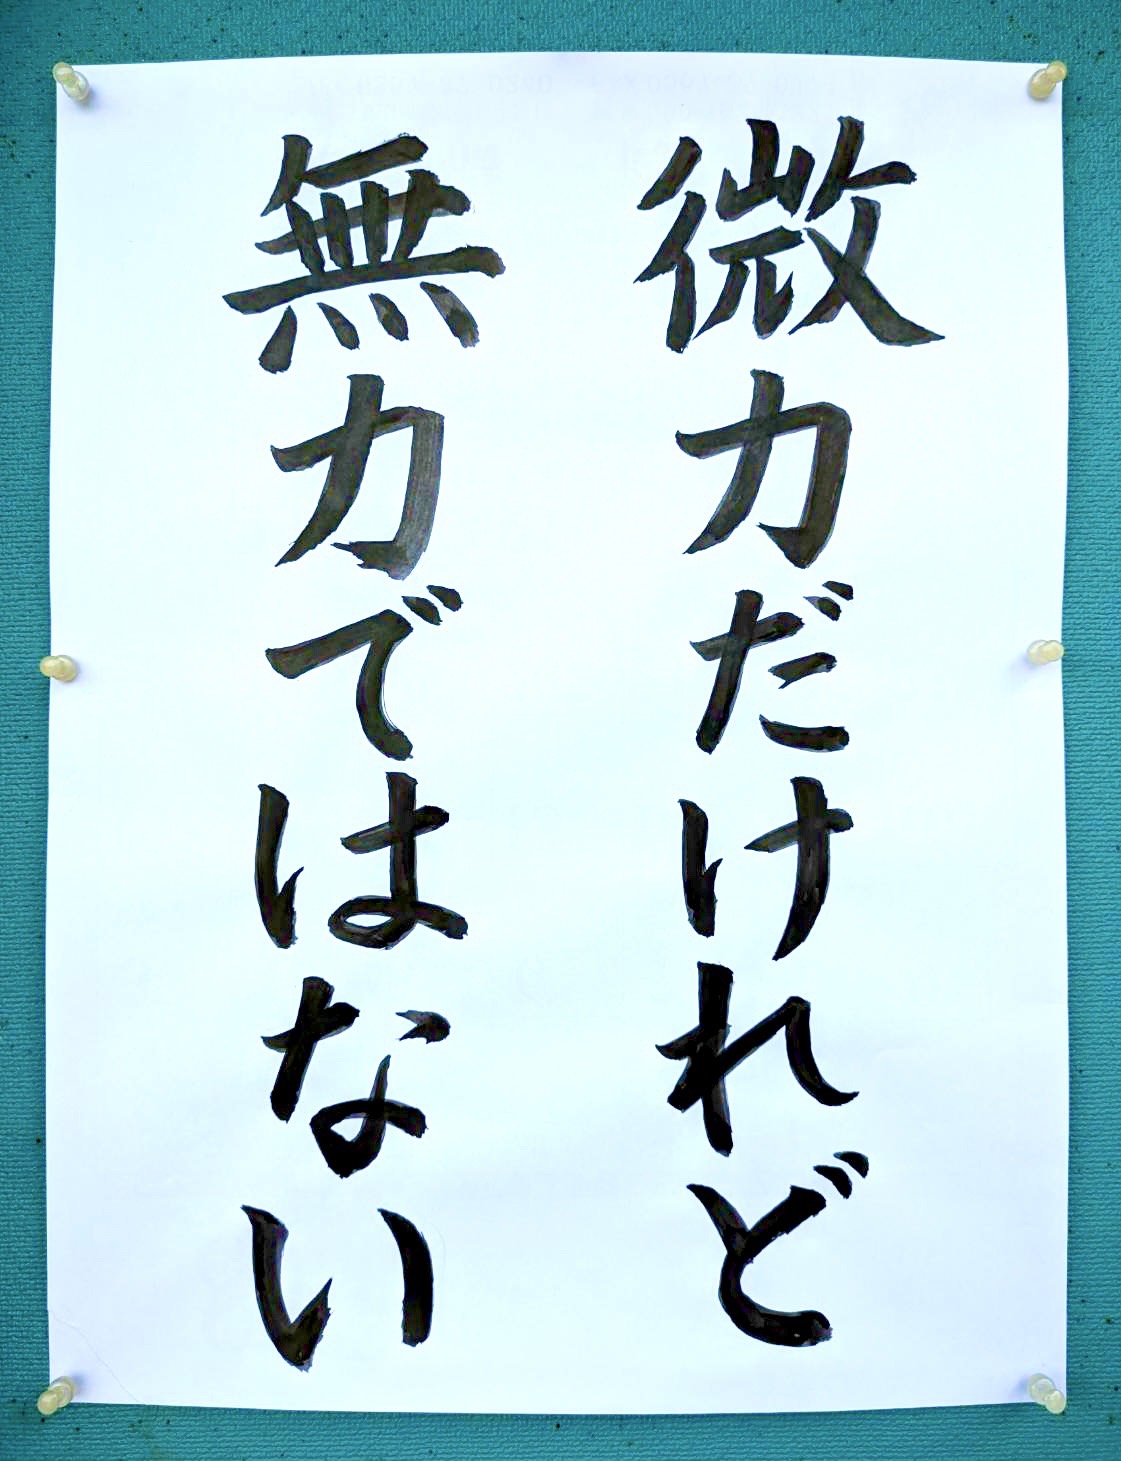 微力だけれど
無力ではない